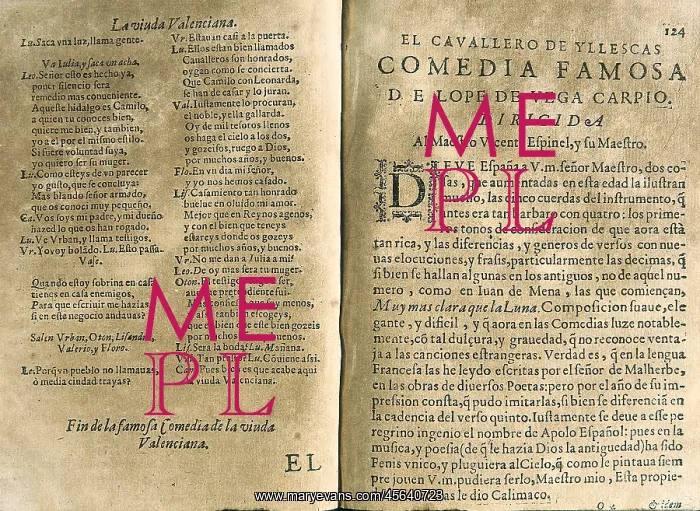 La viuda Valenciana.
Lu. Saca vna luz, llama gente.
Va Iulia, y saca vn acha.
Leo. Señor esto es hecho ya,
poner silencio sera
remedio mas conueniente.
Aqueste hidalgo es Camilo,
a quien tu conoces bien,
quiereme bien, y tambien,
yo a el por el mismo estilo.
Si fuere voluntad suya,
yo quiero ser su muger.
Lu. Como esteys de vn parecer
yo gusto, que se concluya:
Mas blando señor armado,
que os conoci muy pequeño.
Ca. Vos soys mi padre, y mi dueño
hazed lo que os han rogado.
Lu. Ve Vrban, y llama testigos.
Vr. Yo voy bolãdo. Lu. Esto passa.
Vase.
Quando estoy sobrina en casa
tienes en casa enemigos,
Para que escriuir me hazias
si en este negocio andauas?
Salen Vrban, Oton, Lisandro,
Valerio, y Floro.
Le. Porq̃ vn pueblo no llamauas,
ò media ciudad trayas?
Vr. Estauan casi a la puerta.
Lu. Ellos estan bien llamados
Caualleros son honrados,
oygan como se concierta.
Que Camilo con Leonarda,
se han de casar y lo juran.
Val. Iustamente lo procuran,
el noble, y ella gallarda.
Oy de mil tesoros llenos
os haga el cielo a los dos,
y gozeis os, ruego a Dios,
por muchos años, y buenos.
Flo. En vn dia mi señor,
y yo nos hemos casado.
Lis. Casamiento tan honrado
buelue en oluido mi amor.
Mejor que en Reynos agenos,
y con el bien que teneys
estareys donde os gozeys
por muchos años, y buenos.
Vr. No me dan a Iulia a mi?
Leo. De oy mas sera tu muger.
Oton.
por muchos buenos.
Lis. Sera la boda? Lu. Mañana.
Vr. Tan presto? Lu. Cõuiene assi.
Ca. Pues bien es que acabe aqui
la viuda Valenciana.
Fin de la famosa Comedia de la viuda
Valenciana.
EL
124
EL CAVALLERO DE YLLESCAS
COMEDIA FAMOSA
DE LOPE DE VEGA CARPIO.
DIRIGIDA
Al Maestro Vicente Espinel, y su Maestro.
DEVE España a V.m. señor Maestro, dos co-
sas, que aumentadas en esta edad la ilustran
mucho, las cinco cuerdas del instrumento, q̃
antes era tan barbaro con quatro: los prime-
ros tonos de consideracion de que aora està
tan rica, y las diferencias, y generos de versos con nue-
uas elocuciones, y frasis, particularmente las decimas, q̃
si bien se hallan algunas en los antiguos, no de aquel nu-
mero, como en Iuan de Mena, las que comiençan,
Muy mas clara que la Luna. Composicion suaue, ele
gante, y dificil, y q̃ aora en las Comedias luze notable-
mente, cõ tal dulçura, y grauedad, q̃ no reconoce venta-
ja a las canciones estrangeras. Verdad es, q̃ en la lengua
Francesa las he leydo escritas por el señor de Malherbe,
en las obras de diuersos Poetas: pero por el año de su im-
pression consta, q̃ pudo imitarlas, si bien se diferencia en
la cadencia del verso quinto. Iustamente se deue a esse pe
regrino ingenio el nombre de Apolo Español: pues en la
musica, y poesia (de q̃ le hazia Dios la antiguedad) ha sido
Fenis vnico, y pluguiera al Cielo, q̃ como le pintaua siem
pre jouen V.m. pudiera serlo, Maestro mio, Esta propie-
las le dio Calimaco,
O 4 & idem
ME
PL
ME
PL
www.maryevans.com/45640723